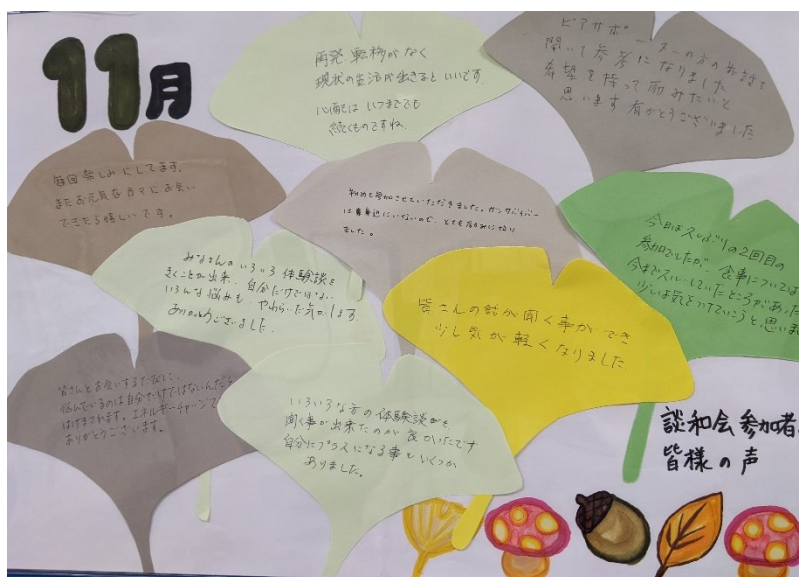 11月
再発 転移がなく
現状の生活が出きるといいです
心配は いつまでも
続くものですね
ピアサポーターの方のお話を
聞いて参考になりました
希望を持って励みたいと
思います 有がとうございました
毎回楽しみにしてます。
またお元気な方々にお会い
できたら嬉しいです。
初めて参加させていただきました。ガンサバイバー
は身近にいないので、とても励みになり
ました。
今日は久しぶりの2回目の
参加でしたが、食事については
今までスルーしていたところがあった
少しは気をつけていこうと思いま
みなさんのいろいろ体験談を
きくことが出来、自分だけではない
いろんな悩みも やわらいだ気がします
ありがとうございました。
皆さんの話が聞く事ができ
少し気が軽くなりました
皆さんとお会いするたびに、
悩んでいるのは自分だけではないんだと
はげまされます。エネルギーチャージで
ありがとうございます。
いろいろな方の体験談が
聞く事が出来たのが良かったです
自分にプラスになる事もいくつか
ありました。
談和会参加者
皆様の声